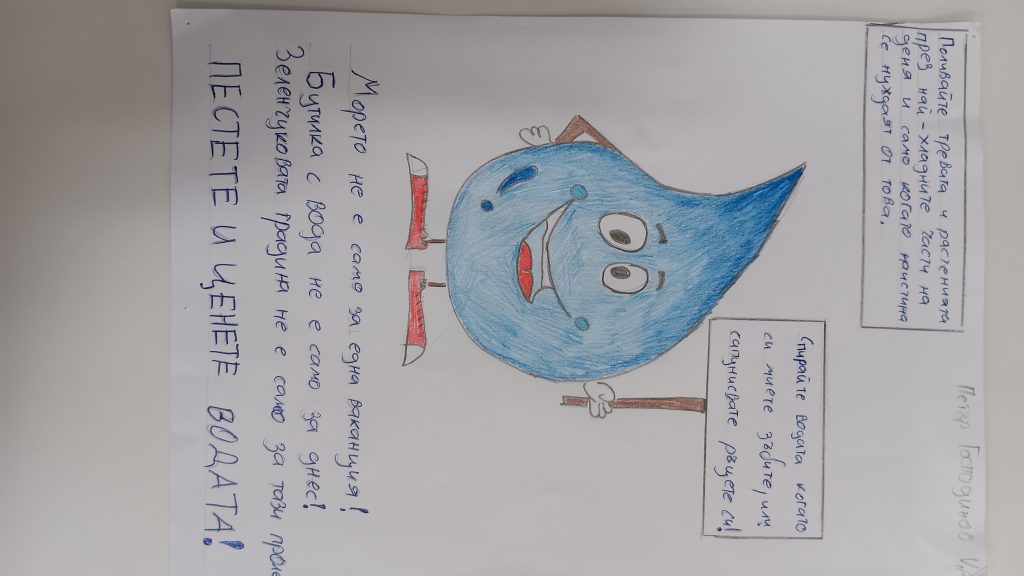 Петър Господинов
Поливайте тревата и растенията
през най-хладните части на
деня и само когато наистина
се нуждаят от това.
Спирайте водата когато
си миете зъбите, или
сапунисвате ръцете си!
Морето не е само за една ваканция!
Бутилка с вода не е само за днес!
Зеленчуковата градина не е само за тази
ПЕСТЕТЕ И ЦЕНЕТЕ ВОДАТА!